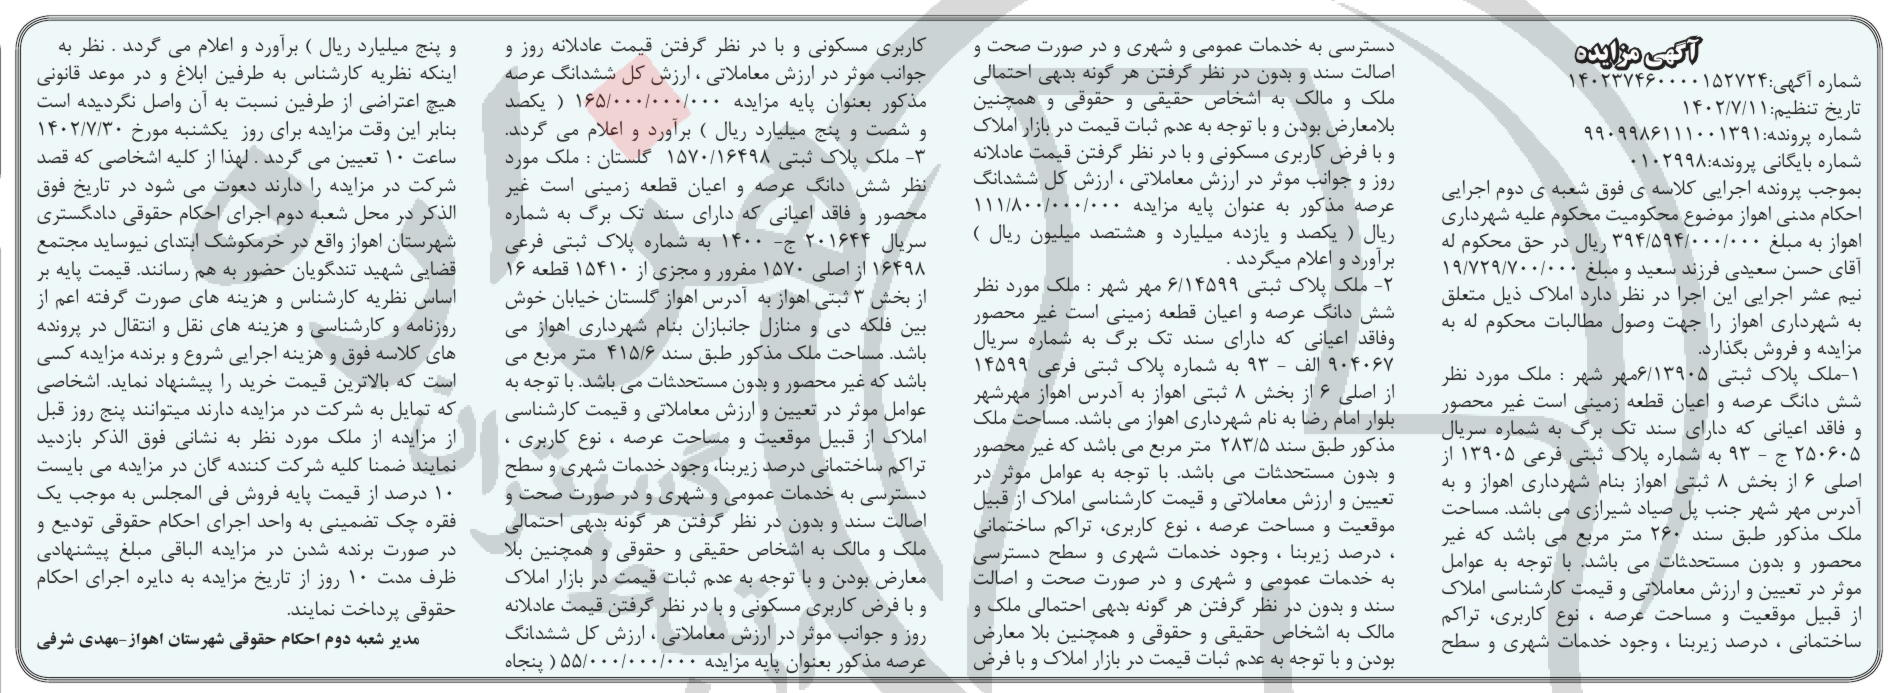 آگهی مزایده
شماره آگهی:۱۴۰۲۳۷۴۶۰۰۰۰۱۵۲۷۲۴
تاریخ تنظیم:۱۴۰۲/۷/۱۱
شماره پرونده:۹۹۰۹۹۸۶۱۱۱۰۰۱۳۹۱
شماره بایگانی پرونده:۰۱۰۲۹۹۸
بموجب پرونده اجرایی کلاسه ی فوق شعبه ی دوم اجرایی
احکام مدنی اهواز موضوع محکومیت محکوم علیه شهرداری
اهواز به مبلغ ۳۹۴/۵۹۴/۰۰۰/۰۰۰ ریال در حق محکوم له
آقای حسن سعیدی فرزند سعید و مبلغ ۱۹/۷۲۹/۷۰۰/۰۰۰
نیم عشر اجرایی این اجرا در نظر دارد املاک ذیل متعلق
به شهرداری اهواز را جهت وصول مطالبات محکوم له به
مزایده و فروش بگذارد.
۱-ملک پلاک ثبتی ۶/۱۳۹۰۵مهر شهر : ملک مورد نظر
شش دانگ عرصه و اعیان قطعه زمینی است غیر محصور
و فاقد اعیانی که دارای سند تک برگ به شماره سریال
۲۵۰۶۰۵ ج - ۹۳ به شماره پلاک ثبتی فرعی ۱۳۹۰۵ از
اصلی ۶ از بخش ۸ ثبتی اهواز بنام شهرداری اهواز و به
آدرس مهر شهر جنب پل صیاد شیرازی می باشد. مساحت
ملک مذکور طبق سند ۲۶۰ متر مربع می باشد که غیر
محصور و بدون مستحدثات می باشد. با توجه به عوامل
موثر در تعیین و ارزش معاملاتی و قیمت کارشناسی املاک
از قبیل موقعیت و مساحت عرصه ، نوع کاربری، تراکم
ساختمانی ، درصد زیربنا ، وجود خدمات شهری و سطح
دسترسی به خدمات عمومی و شهری و در صورت صحت و
اصالت سند و بدون در نظر گرفتن هر گونه بدهی احتمالی
ملک و مالک به اشخاص حقیقی و حقوقی و همچنین
بلامعارض بودن و با توجه به عدم ثبات قیمت در بازار املاک
و با فرض کاربری مسکونی و با در نظر گرفتن قیمت عادلانه
روز و جوانب موثر در ارزش معاملاتی ، ارزش کل ششدانگ
عرصه مذکور به عنوان پایه مزایده ۱۱۱/۸۰۰/۰۰۰/۰۰۰
ریال ( یکصد و یازده میلیارد و هشتصد میلیون ریال )
برآورد و اعلام میگردد .
۲- ملک پلاک ثبتی ۶/۱۴۵۹۹ مهر شهر : ملک مورد نظر
شش دانگ عرصه و اعیان قطعه زمینی است غیر محصور
وفاقد اعیانی که دارای سند تک برگ به شماره سریال
۹۰۴۰۶۷ الف - ۹۳ به شماره پلاک ثبتی فرعی ۱۴۵۹۹
از اصلی ۶ از بخش ۸ ثبتی اهواز به آدرس اهواز مهرشهر
بلوار امام رضا به نام شهرداری اهواز می باشد. مساحت ملک
مذکور طبق سند ۲۸۳/۵ متر مربع می باشد که غیر محصور
و بدون مستحدثات می باشد. با توجه به عوامل موثر در
تعیین و ارزش معاملاتی و قیمت کارشناسی املاک از قبیل
موقعیت و مساحت عرصه ، نوع کاربری، تراکم ساختمانی
، درصد زیربنا ، وجود خدمات شهری و سطح دسترسی
به خدمات عمومی و شهری و در صورت صحت و اصالت
سند و بدون در نظر گرفتن هر گونه بدهی احتمالی ملک و
مالک به اشخاص حقیقی و حقوقی و همچنین بلا معارض
بودن و با توجه به عدم ثبات قیمت در بازار املاک و با فرض
کاربری مسکونی و با در نظر گرفتن قیمت عادلانه روز و
جوانب موثر در ارزش معاملاتی ، ارزش کل ششدانگ عرصه
مذکور بعنوان پایه مزایده ۱۶۵/۰۰۰/۰۰۰/۰۰۰ ( یکصد
و شصت و پنج میلیارد ریال ) برآورد و اعلام می گردد.
۳- ملک پلاک ثبتی ۱۵۷۰/۱۶۴۹۸ گلستان : ملک مورد
نظر شش دانگ عرصه و اعیان قطعه زمینی است غیر
محصور و فاقد اعیانی که دارای سند تک برگ به شماره
سریال ۲۰۱۶۴۴ ج- ۱۴۰۰ به شماره پلاک ثبتی فرعی
۱۶۴۹۸ از اصلی ۱۵۷۰ مفرور و مجزی از ۱۵۴۱۰ قطعه ۱۶
از بخش ۳ ثبتی اهواز به آدرس اهواز گلستان خیابان خوش
بین فلکه دی و منازل جانبازان بنام شهرداری اهواز می
باشد. مساحت ملک مذکور طبق سند ۴۱۵/۶ متر مربع می
باشد که غیر محصور و بدون مستحدثات می باشد. با توجه به
عوامل موثر در تعیین و ارزش معاملاتی و قیمت کارشناسی
املاک از قبیل موقعیت و مساحت عرصه ، نوع کاربری ،
تراکم ساختمانی درصد زیربنا، وجود خدمات شهری و سطح
دسترسی به خدمات عمومی و شهری و در صورت صحت و
اصالت سند و بدون در نظر گرفتن هر گونه بدهی احتمالی
ملک و مالک به اشخاص حقیقی و حقوقی و همچنین بلا
معارض بودن و با توجه به عدم ثبات قیمت در بازار املاک
و با فرض کاربری مسکونی و با در نظر گرفتن قیمت عادلانه
روز و جوانب موثر در ارزش معاملاتی ، ارزش کل ششدانگ
عرصه مذکور بعنوان پایه مزایده ۵۵/۰۰۰/۰۰۰/۰۰۰ ( پنجاه
و پنج میلیارد ریال ) برآورد و اعلام می گردد . نظر به
اینکه نظریه کارشناس به طرفین ابلاغ و در موعد قانونی
هیچ اعتراضی از طرفین نسبت به آن واصل نگردیده است
بنابر این وقت مزایده برای روز یکشنبه مورخ ۱۴۰۲/۷/۳۰
ساعت ۱۰ تعیین می گردد . لهذا از کلیه اشخاصی که قصد
شرکت در مزایده را دارند دعوت می شود در تاریخ فوق
الذکر در محل شعبه دوم اجرای احکام حقوقی دادگستری
شهرستان اهواز واقع در خرمکوشک ابتدای نیوساید مجتمع
قضایی شهید تندگویان حضور به هم رسانند. قیمت پایه بر
اساس نظریه کارشناس و هزینه های صورت گرفته اعم از
روزنامه و کارشناسی و هزینه های نقل و انتقال در پرونده
های کلاسه فوق و هزینه اجرایی شروع و برنده مزایده کسی
است که بالاترین قیمت خرید را پیشنهاد نماید. اشخاصی
که تمایل به شرکت در مزایده دارند میتوانند پنج روز قبل
از مزایده از ملک مورد نظر به نشانی فوق الذکر بازدید
نمایند ضمنا کلیه شرکت کننده گان در مزایده می بایست
۱۰ درصد از قیمت پایه فروش فی المجلس به موجب یک
فقره چک تضمینی به واحد اجرای احکام حقوقی تودیع و
در صورت برنده شدن در مزایده الباقی مبلغ پیشنهادی
ظرف مدت ۱۰ روز از تاریخ مزایده به دایره اجرای احکام
حقوقی پرداخت نمایند.
مدیر شعبه دوم احکام حقوقی شهرستان اهواز-مهدی شرفی
هزاره
گستران
ارتباط